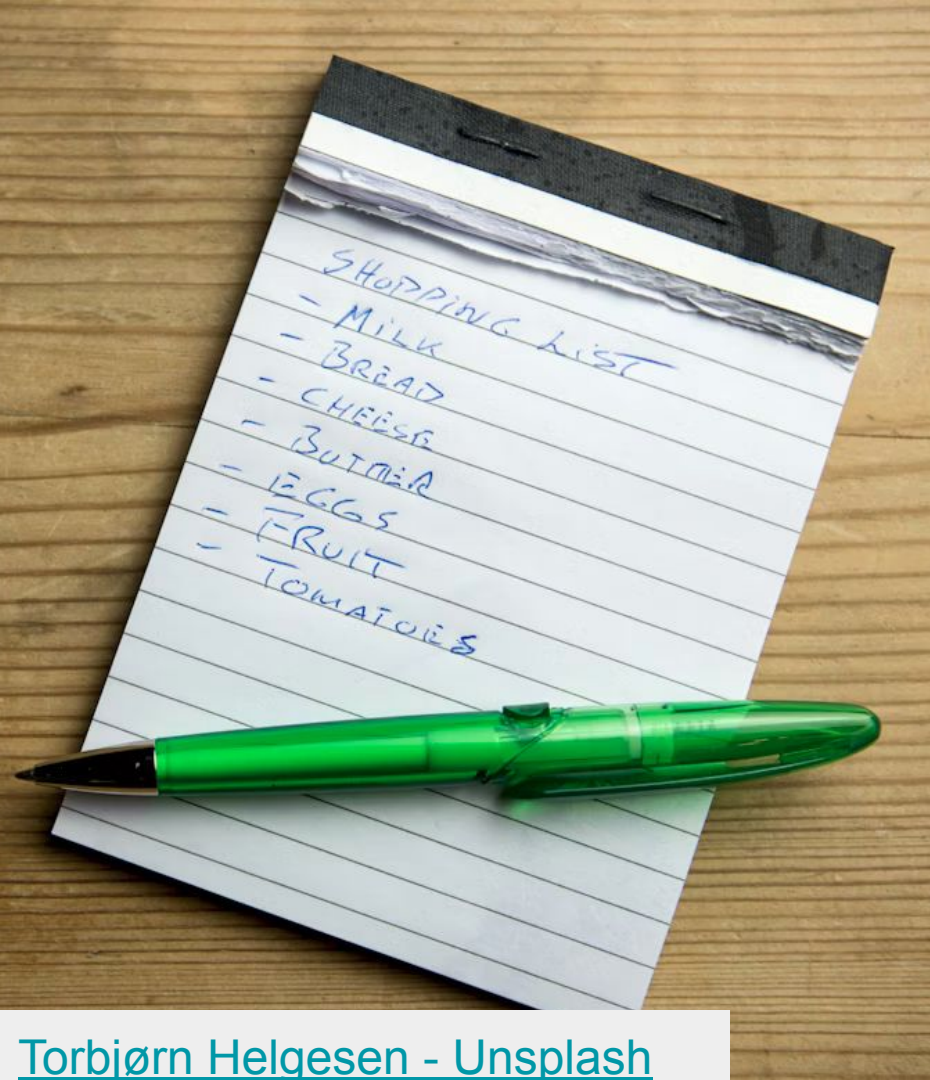 SHOPPING LIST
- MILK
- BREAD
- CHEESE
- BUTTER
- EGGS
- FRUIT
- TOMATOES
Torbjørn Helgesen - Unsplash